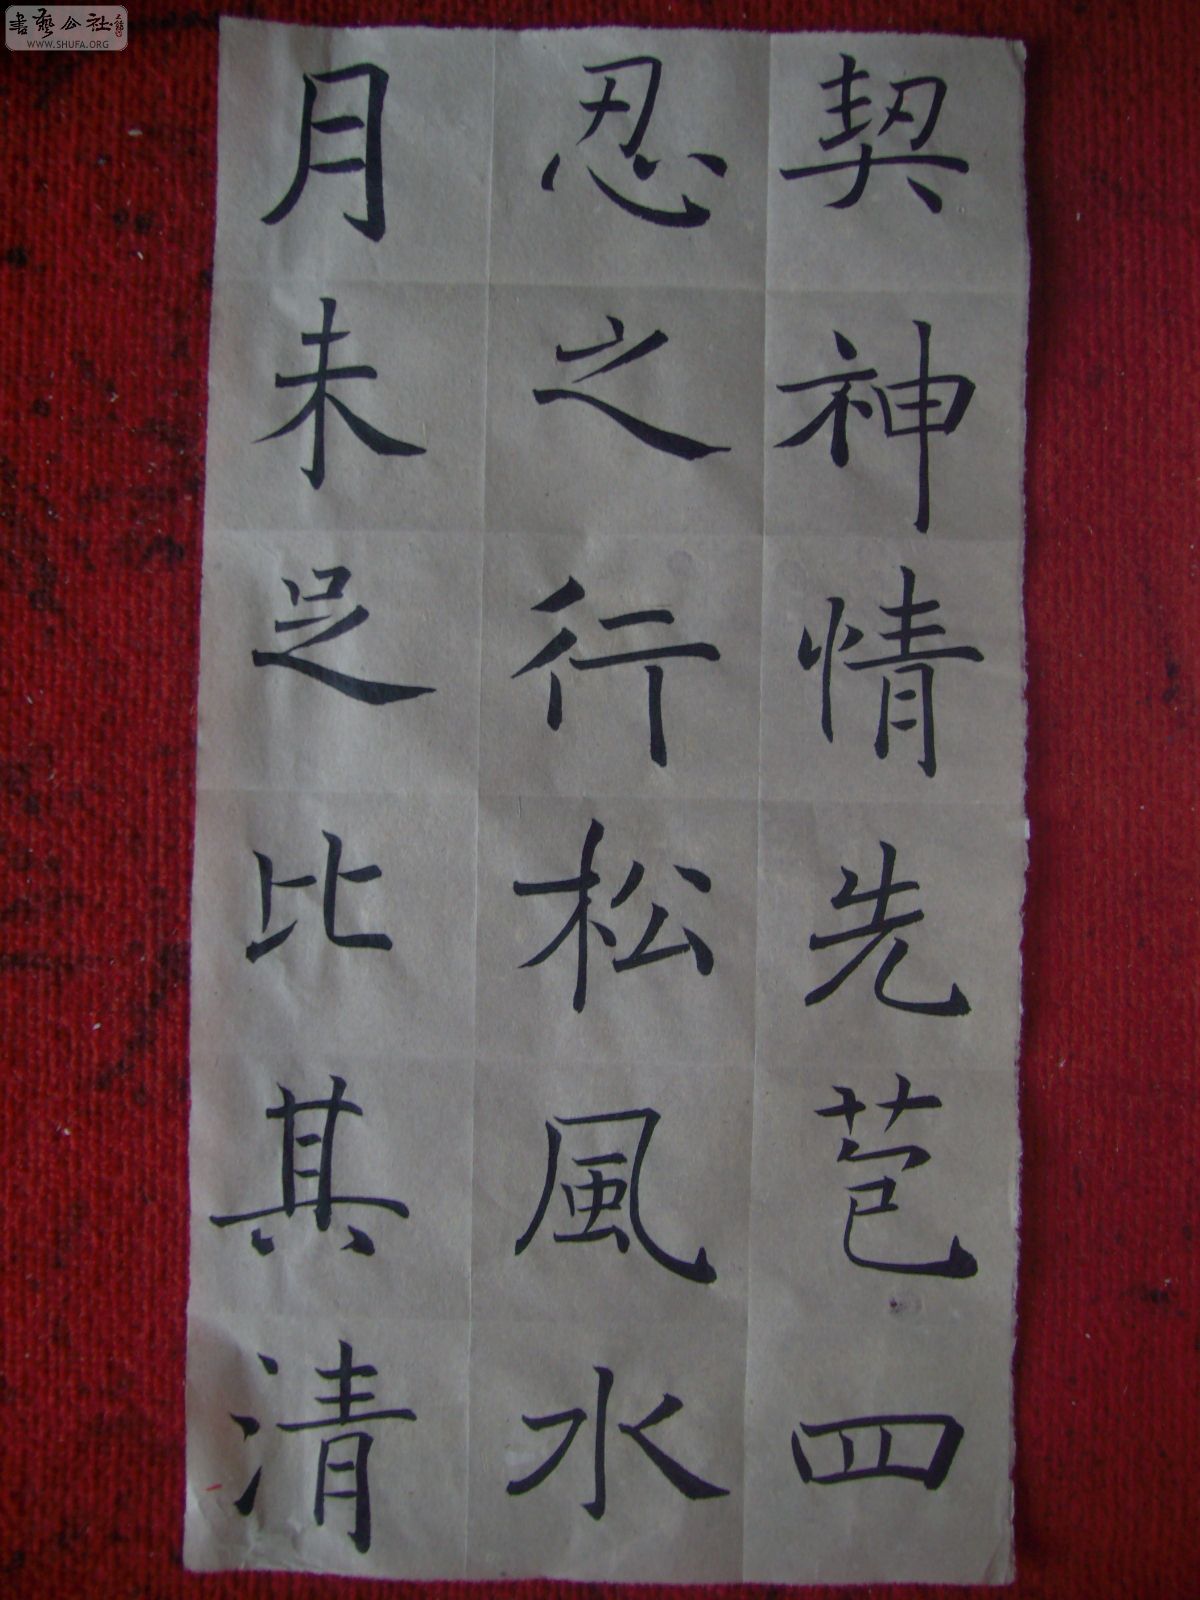 契神情先苞四
忍之行松風水
月未足比其清
書藝公社
WWW.SHUFA.ORG